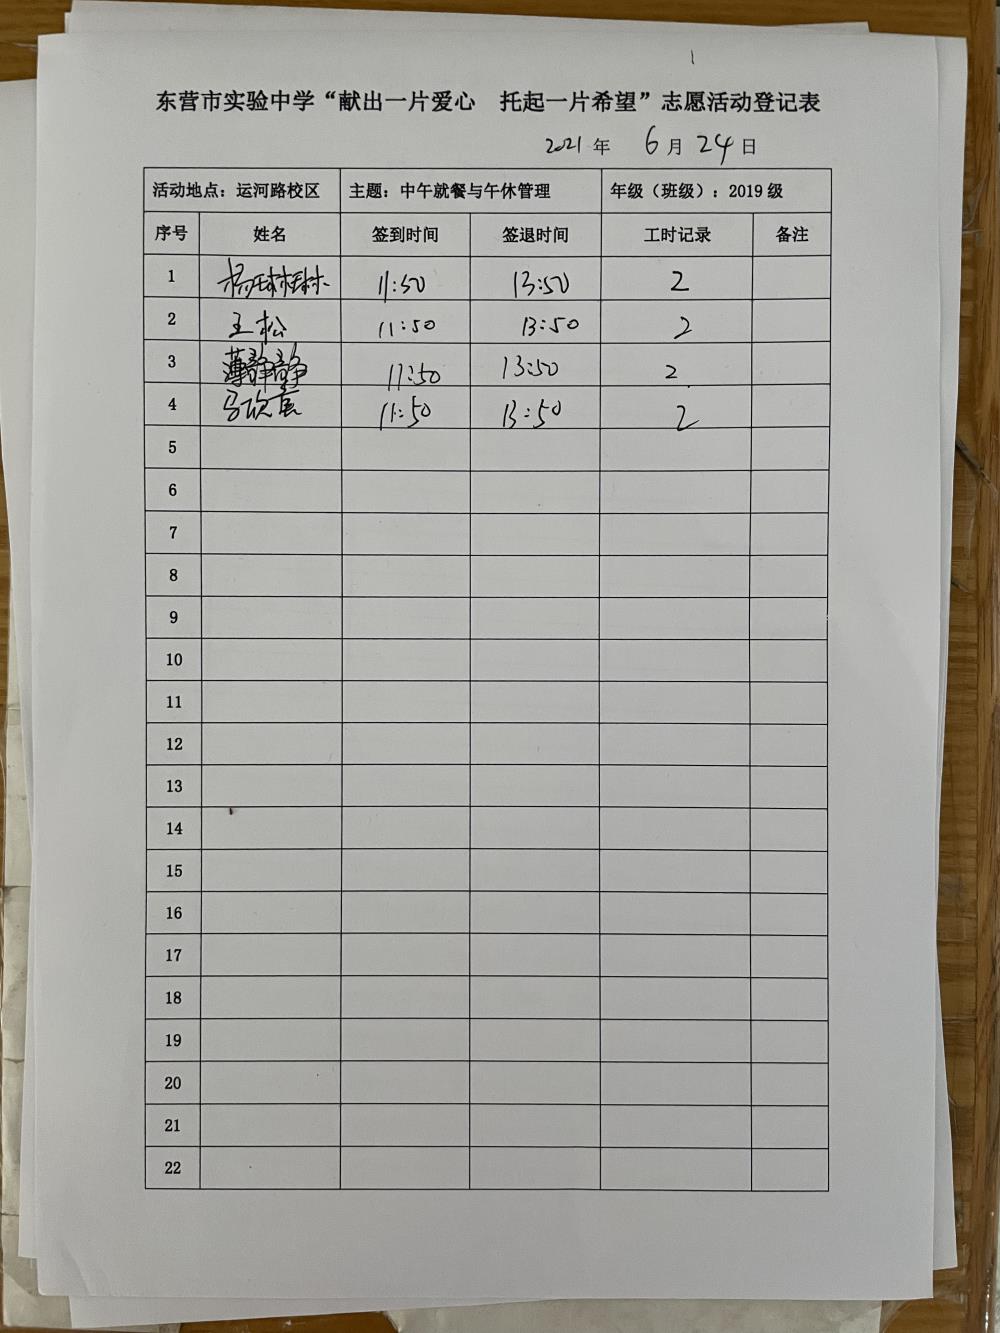 东营市实验中学“献出一片爱心 托起一片希望”志愿活动登记表
2021 年 6 月 24 日
活动地点：运河路校区 主题：中午就餐与午休管理 年级（班级）：2019 级
序号 姓名 签到时间 签退时间 工时记录 备注
1 杨琳琳 11:50 13:50 2
2 王松 11:50 13:50 2
3 薄静静 11:50 13:50 2
4 11:50 13:50 2
5
6
7
8
9
10
11
12
13
14
15
16
17
18
19
20
21
22